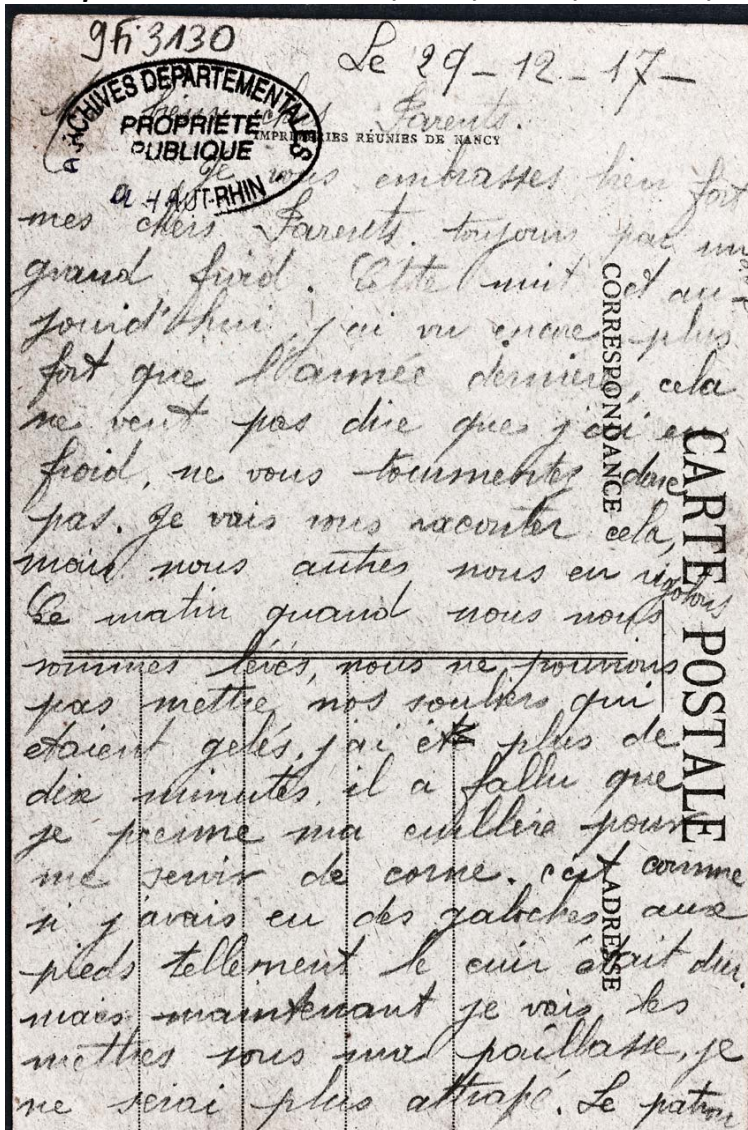 9Fi3130
Le 29-12-17-
chers Parents.
ARCHIVES DEPARTEMENTALES
PROPRIÉTÉ
PUBLIQUE
HAUT-RHIN
IMPRIMERIES RÉUNIES DE NANCY
Je vous embrasses bien fort
mes chers Parents. toujours par un
grand froid. Cette nuit et au-
jourd'hui, j'ai vu encore plus
fort que l'année derniere, cela
ne veut pas dire que j'ai eu
froid, ne vous tourmentez donc
pas. Je vais vous raconter cela,
mais nous autres nous en rigolons
Le matin quand nous nous
sommes levés, nous ne pouvions
pas mettre nos souliers qui
etaient gelés, j'ai été plus de
dix minutes, il a fallu que
je prenne ma cuillère pour
me servir de corne. c'est comme
si j'avais eu des galoches aux
pieds tellement le cuir était dur.
mais maintenant je vais les
mettres sous ma paillasse, je
ne serai plus attrapé. Le patron
CORRESPONDANCE
CARTE POSTALE
ADRESSE